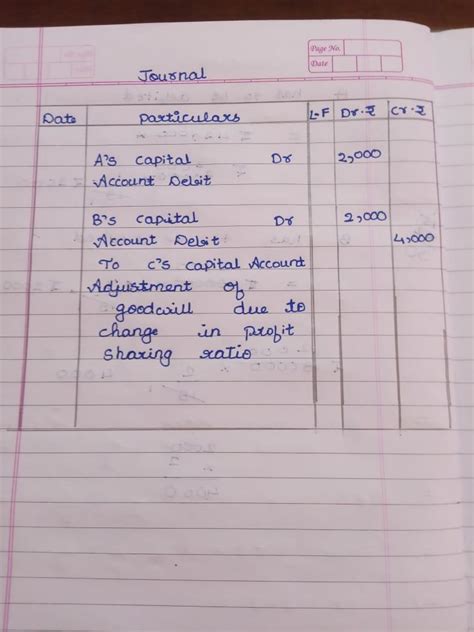 Page No.
Date
Journal
Date Particulars L-F Dr.₹ Cr.₹
A's capital Dr 2,000
Account Debit
B's capital Dr 2,000
Account Debit 4,000
To C's capital Account
Adjustment of
goodwill due to
change in profit
sharing ratio